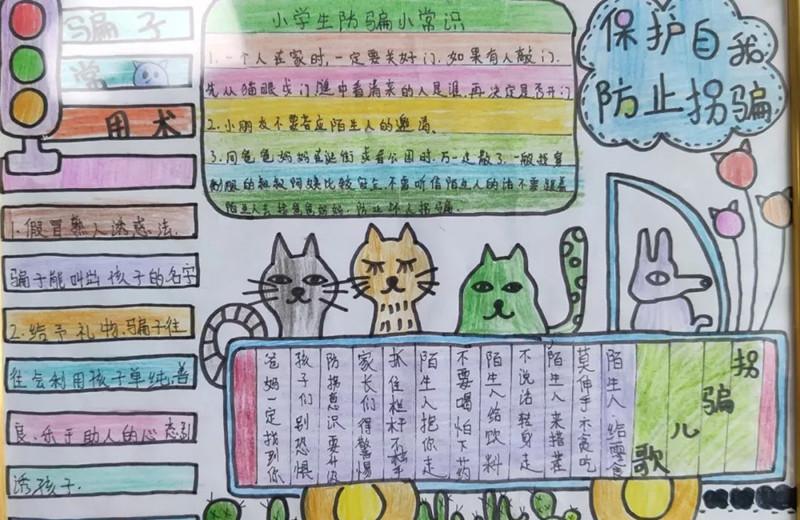 保护自我
防止拐骗
骗子
常
用术
1.假冒熟人诱惑法.
骗子能叫出孩子的名字
2.给予礼物,骗子往
往会利用孩子单纯、善
良、乐于助人的心态引
诱孩子.
小学生防骗小常识
1.一个人在家时,一定要关好门.如果有人敲门.
先从猫眼或门缝中看清来的人是谁,再决定是否开门
2.小朋友不要答应陌生人的邀请.
3.同爸爸妈妈在逛街或者公园时,万一走散了.
制服的叔叔阿姨比较安全.不要听信陌生人的话不要跟着
陌生人去找爸爸妈妈.防止坏人拐骗.
拐
骗
儿
歌
陌生人给零食
莫伸手不贪吃
陌生人来搭茬
不说话转身走
陌生人给饮料
不要喝怕下药
陌生人把你走
抓住栏杆不松手
家长们得警惕
防拐意识要升级
孩子们别恐惧
爸妈一定找到你